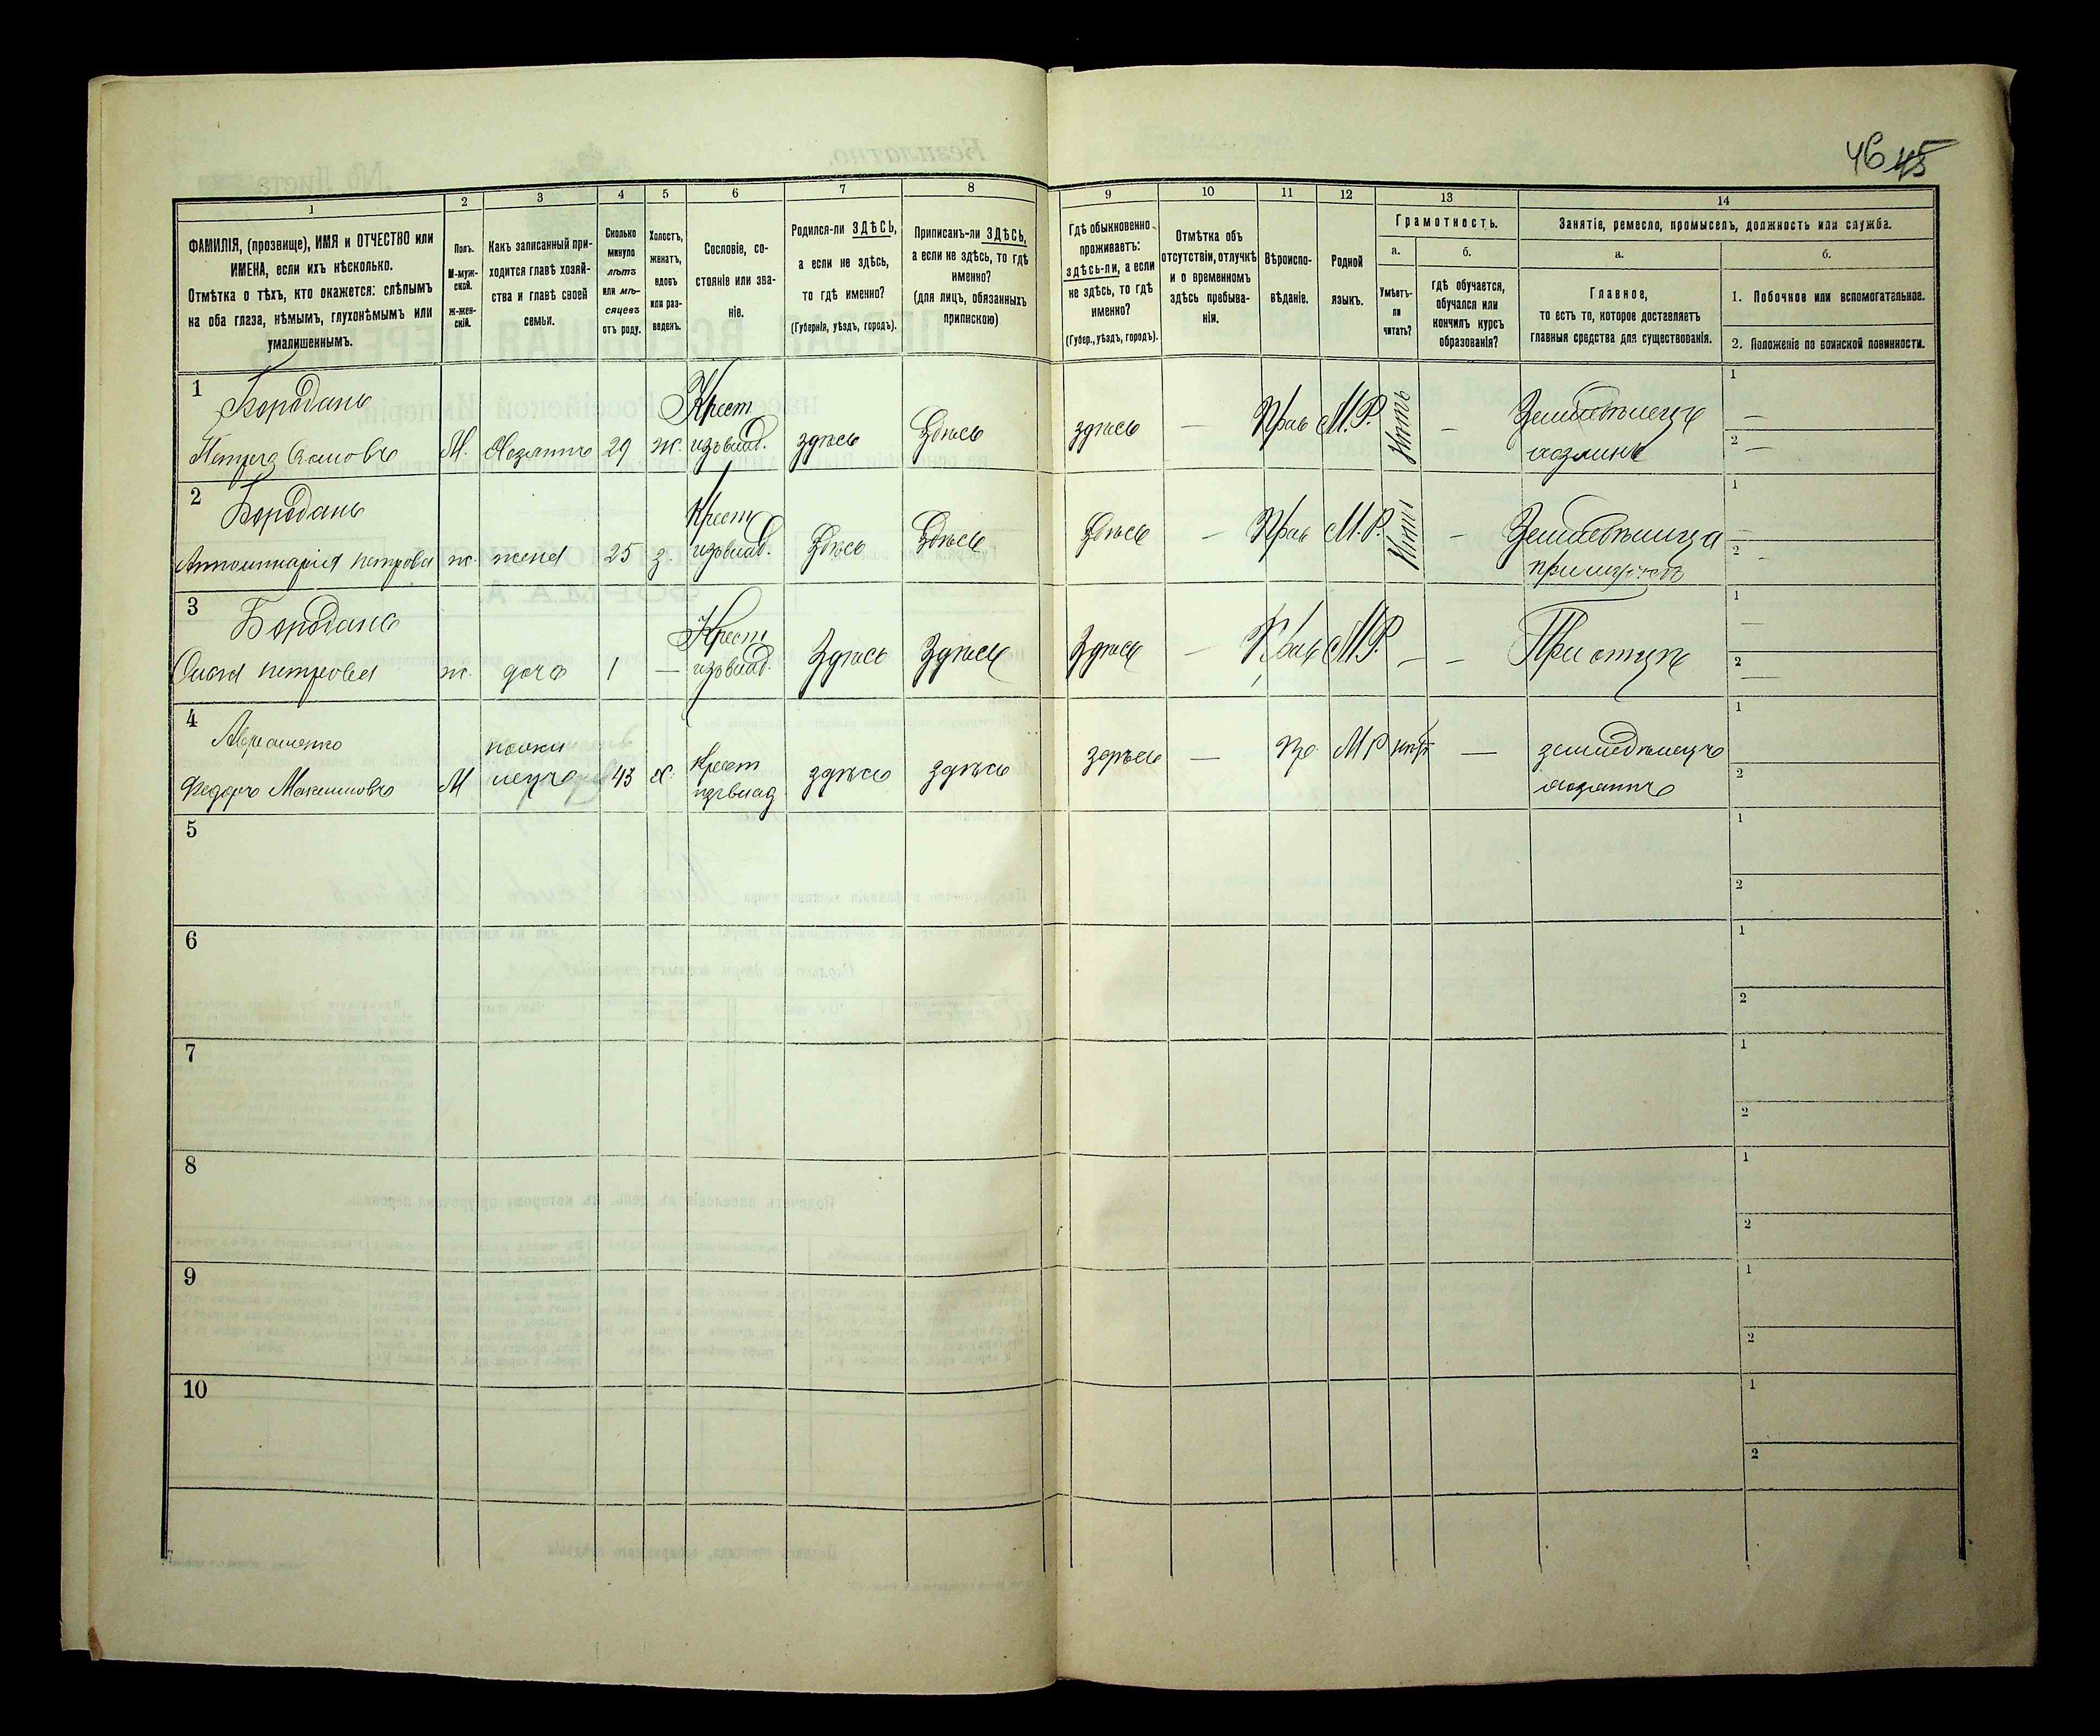 46 45
1 2 3 4 5 6 7 8 9 10 11 12 13 14
ФАМИЛІЯ, (прозвище), ИМЯ и ОТЧЕСТВО или
ИМЕНА, если ихъ нѣсколько.
Отмѣтка о тѣхъ, кто окажется: слѣпымъ
на оба глаза, нѣмымъ, глухонѣмымъ или
умалишеннымъ.
Полъ.
М-муж-
ской.
Ж-жен-
скій.
Какъ записанный при-
ходится главѣ хозяй-
ства и главѣ своей
семьи.
Сколько
минуло
лѣтъ
или мѣ-
сяцевъ
отъ роду.
Холостъ,
женатъ,
вдовъ
или раз-
веденъ.
Сословіе, со-
стояніе или зва-
ніе.
Родился-ли ЗДѢСЬ,
а если не здѣсь,
то гдѣ именно?
(Губернія, уѣздъ, городъ).
Приписанъ-ли ЗДѢСЬ,
а если не здѣсь, то гдѣ
именно?
(для лицъ, обязанныхъ
припискою)
Гдѣ обыкновенно
проживаетъ:
здѣсь-ли, а если
не здѣсь, то гдѣ
именно?
(Губер., уѣздъ, городъ).
Отмѣтка объ
отсутствіи, отлучкѣ
и о временномъ
здѣсь пребыва-
ніи.
Вѣроиспо-
вѣданіе.
Родной
языкъ.
Грамотность.
а.
Умѣетъ-
ли
читать?
б.
гдѣ обучается,
обучался или
кончилъ курсъ
образованія?
Занятіе, ремесло, промыселъ, должность или служба.
а.
Главное,
то есть то, которое доставляетъ
главныя средства для существованія.
б.
1. Побочное или вспомогательное.
2. Положеніе по воинской повинности.
1 Бородань Крест Земледѣлецъ 1 —
Петръ М. Хозяинъ 29 ж. изъвлад. здѣсь Здѣсь здѣсь — Прав М.Р. Нѣтъ — хозяинъ 2 —
2 Бородань Крест 1 —
петрова ж. жена 25 з. изъвлад. Здѣсь Здѣсь Здѣсь — Прав М.Р. Нѣтъ — 2 -
3 Бородань Крест 1 —
петрова ж. дочь 1 — изъвлад. Здѣсь Здѣсь Здѣсь — Прав М.Р. — — При отцѣ 2 —
4 Авраменко 1
Федоръ Максимовъ М 43 х. Крест изъвлад здѣсь здѣсь здѣсь — Пр. М Р нѣтъ — земледѣлецъ хозяинъ 2
5 1
2
6 1
2
7 1
2
8 1
2
9 1
2
10 1
2